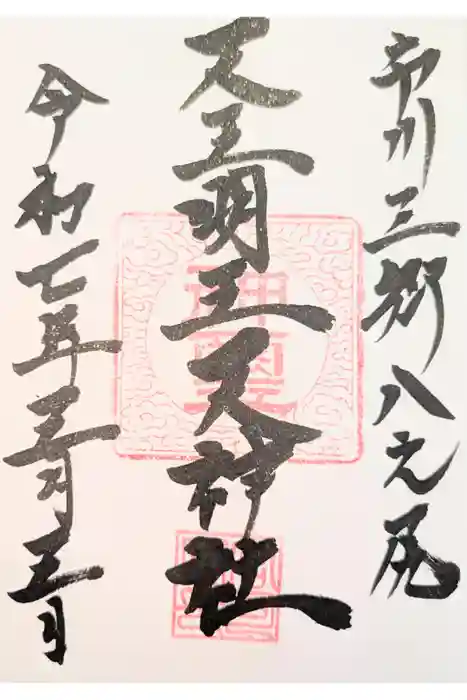 市川三郷八之尻
天王明王天神社
令和七年五月五日